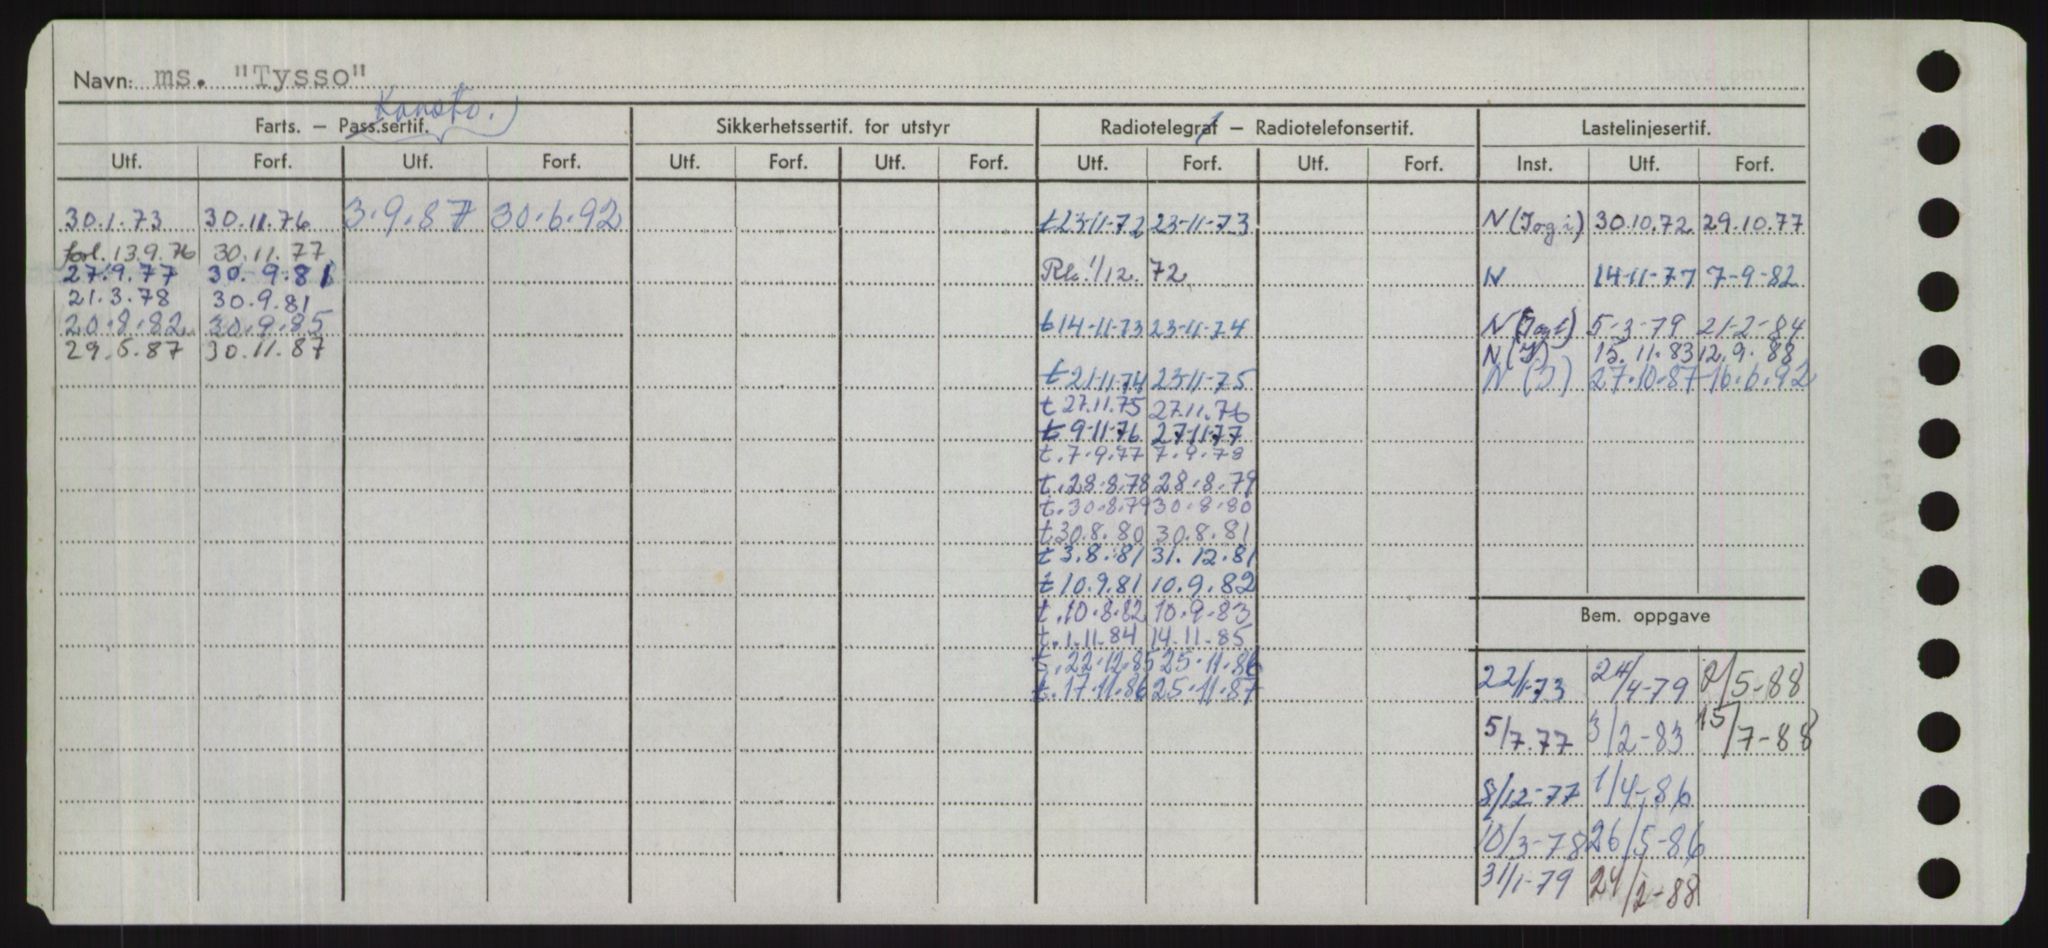 Navn: ms. "Tysso"
Farts. – Pass.sertif.
Sikkerhetssertif. for utstyr
Radiotelegraf – Radiotelefonsertif.
Lastelinjesertif.
Utf. Forf. Utf. Forf. Utf. Forf. Utf. Forf. Utf. Forf. Utf. Forf. Inst. Utf. Forf.
30.1.73 30.11.76 3.9.87 30.6.92 t 23-11-72 23-11-73 N 30.10.72 29.10.77
forl. 13.9.76 30.11.77
27.9.77 30.9.81 1/12. 72 N 14-11-77 7-9-82
21.3.78 30.9.81
20.8.82 30.9.85 t 14-11-73 23-11-74 N 5-3-79 21-2-84
29.5.87 30.11.87 N (I) 15.11.83 12.9.88
t 21-11-74 23-11-75 N (I) 27.10.87 16.6.92
t 27.11.75 27.11.76
t 9-11-76 27-11-77
t. 7.9.77 7.9.78
t. 28.8.78 28.8.79
t. 30.8.79 30.8.80
t 30.8.80 30.8.81
t 3.8.81 31.12.81
t 10.9.81 10.9.82
t. 10.8.82 10.9.83
t. 1.11.84 14.11.85
t. 22.12.85 25.11.86
t. 17.11.86 25.11.87
Bem. oppgave
22/1-73 24/4-79 2/5-88
5/7.77 3/2-83 15/7-88
8/12-77 1/4-86
10/3-78 26/5-86
31/1-79 24/2-88